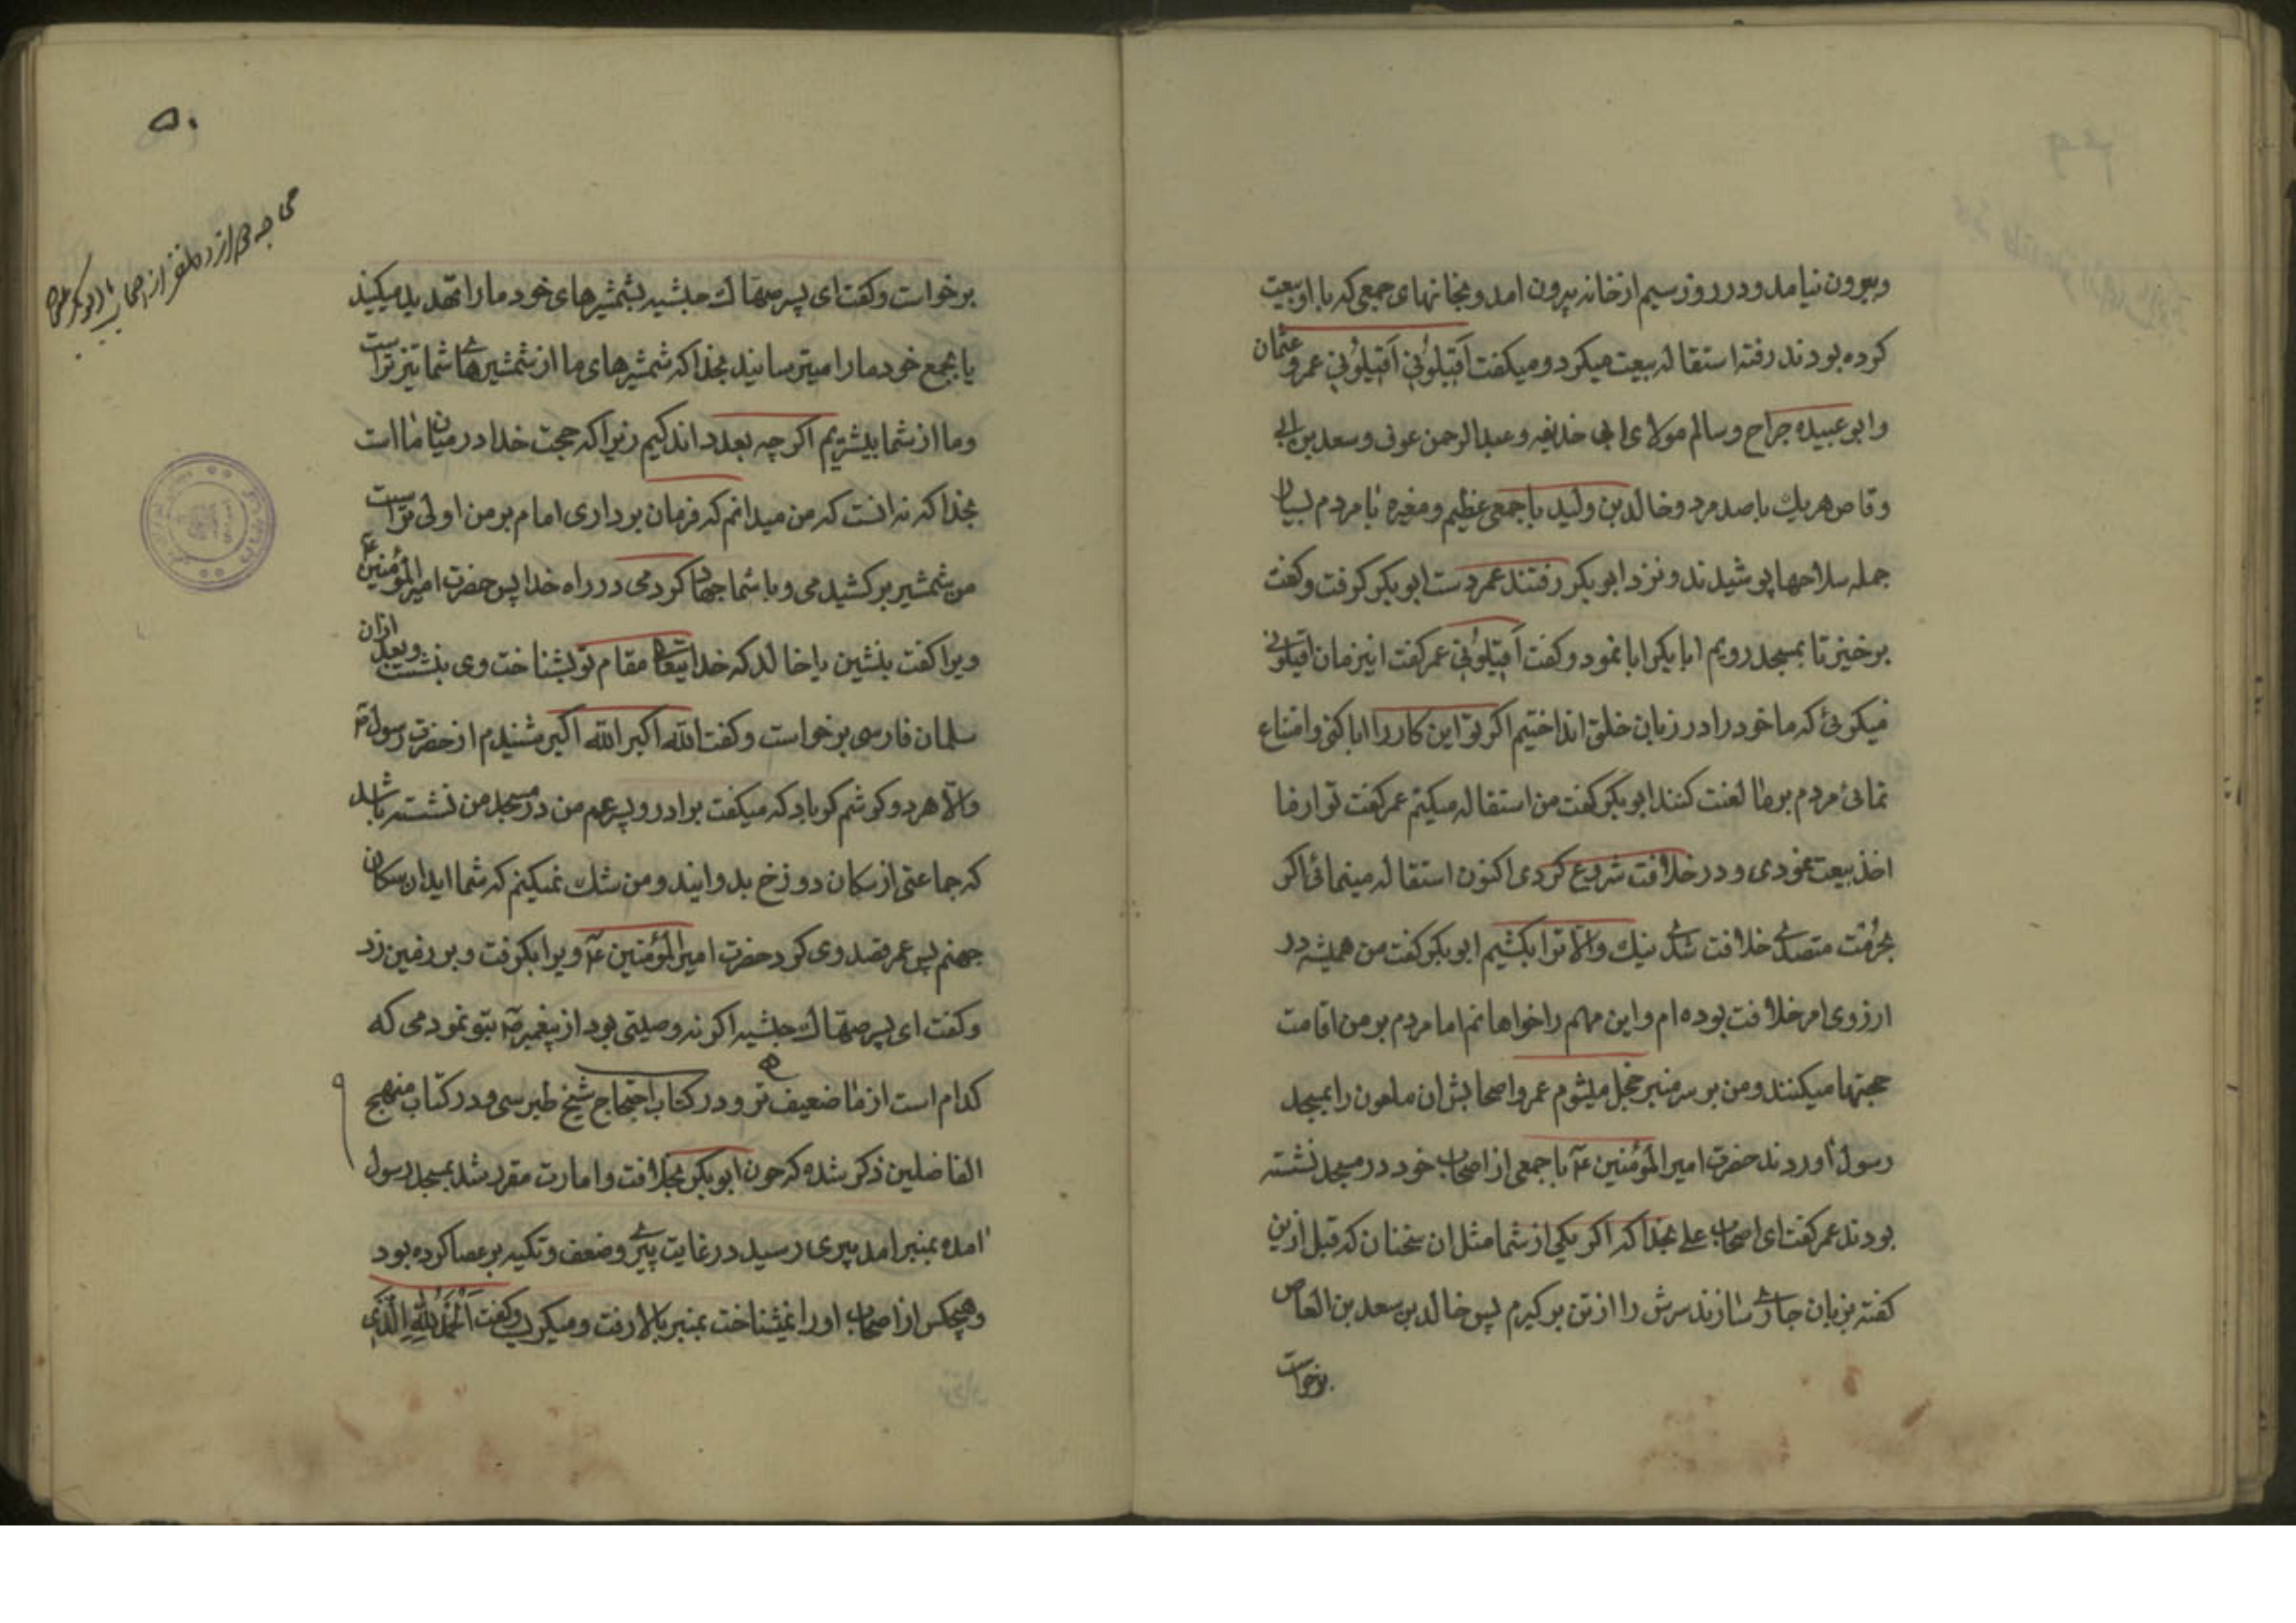 وبیرون نیامد و در روز سیم از خانه بیرون امد و بخانهای جمعی که با او بیعت
کرده بودند رفته استقاله بیعت میکرد و میکفت اَقیلُونی اَقیلُونی عمر و عثمان
و ابو عبیده جراح و سالم مولای ابی حذیفه و عبدالرحمن عوف و سعد بن ابی
وقاص هریك با صد مرد و خالد بن ولید با جمعی عظیم و مغیره با مردم بسیار
جمله سلاحها پوشیدند و نزد ابوبکر رفتند عمر دست ابوبکر کرفت و کفت
برخیز تا بمسجد رویم ابابکر ابا نمود و کفت اَقیلُونی عمر کفت این زمان اقیلونی
میکوئی که ما خود را در زبان خلق انداختیم اکر تو این کار را ابا کنی و امتناع
نمائی مردم بر ما لعنت کنند ابوبکر کفت من استقاله میکنم عمر کفت تو از ما
اخذ بیعت نمودی و در خلافت شروع کردی اکنون استقاله مینمائی اکر
بحرمت متصدی خلافت شدی نیك و الّا ترا بکشیم ابوبکر کفت من همیشه در
ارزوی امر خلافت بوده ام و این مهم را خواهانم اما مردم بر من اقامت
حجتها میکنند و من بر سر منبر خجل میشوم عمر و اصحابش ان ملعون را بمسجد
رسول اوردند حضرت امیر المؤمنین ع با جمعی از اصحاب خود در مسجد نشسته
بودند عمر کفت ای اصحاب علی بخدا که اکر یکی از شما مثل ان سخنان که قبل ازین
کفته بزبان جاری سازند سرش را از تن برکیرم پس خالد بن سعد بن العاص
برخواست
۵۰
برخواست و کفت ای پسر صهاك حبشیه بشمشیرهای خود ما را تهدید میکنید
یا بجمع خود ما را میترسانید بخدا که شمشیرهای ما از شمشیرهای شما تیزتر است
و ما از شما بیشتریم اکرچه بعدد اندکیم زیرا که حجت خدا در میان ما است
بخدا که نه انست که من میدانم که فرمان برداری امام بر من اولی تر است
من شمشیر برکشیدمی و با شما جهاد کردمی در راه خدا پس حضرت امیر المؤمنین ع
ویرا کفت بنشین یا خالد که خدایتعالی مقام تو بشناخت وی بنشست و بعد ازان
سلمان فارسی برخواست و کفت الله اکبر الله اکبر شنیدم از حضرت رسول ص
و الّا هر دو کوشم کر باد که میکفت برادر و پسر عم من در مسجد من نشسته باشد
که جماعتی از سکان دوزخ بدو ایند و من شك نمیکنم که شمااید ان سکان
جهنم پس عمر قصد وی کرد حضرت امیر المؤمنین ع ویرا بکرفت و بر زمین زد
و کفت ای پسر صهاك حبشیه اکر نه وصیتی بود از پیغمبر ص بتو نمودمی که
کدام است از ما ضعیف تر و در کتاب احتجاج شیخ طبرسی و در کتاب منهج
الفاضلین ذکر شده که چون ابوبکر بخلافت و امارت مقرر شد بمسجد رسول
امده بمنبر امد پیری رسید در غایت پیری و ضعف و تکیه بر عصا کرده بود
و هیچکس از اصحاب او را نمیشناخت بمنبر بالا رفت و میکریست و کفت اَلْحَمْدُ لِلّٰهِ الَّذی